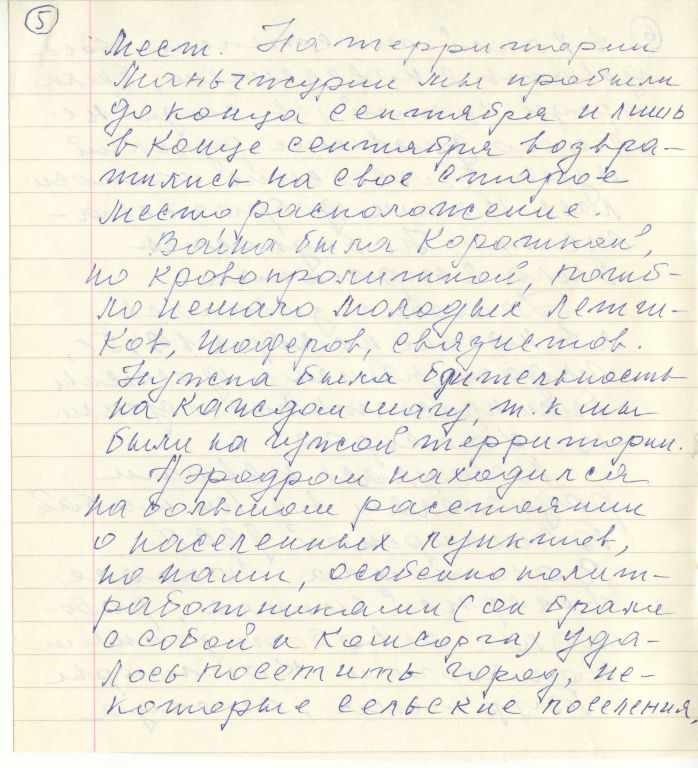 5
мест. На территории
Маньчжурии мы пробыли
до конца сентября и лишь
в конце сентября возвра-
тились на свое старое
место расположение.
Война была короткой,
но кровопролитной, погиб-
ло немало молодых летчи-
ков, шоферов, связистов.
Нужна была бдительность
на каждом шагу, т к мы
были на чужой территории.
Аэродром находился
на большом расстоянии
о населенных пунктов,
но нами, особенно полит-
работниками (он брали
с собой и комсорга) уда-
лось посетить город, не-
которые сельские поселения,